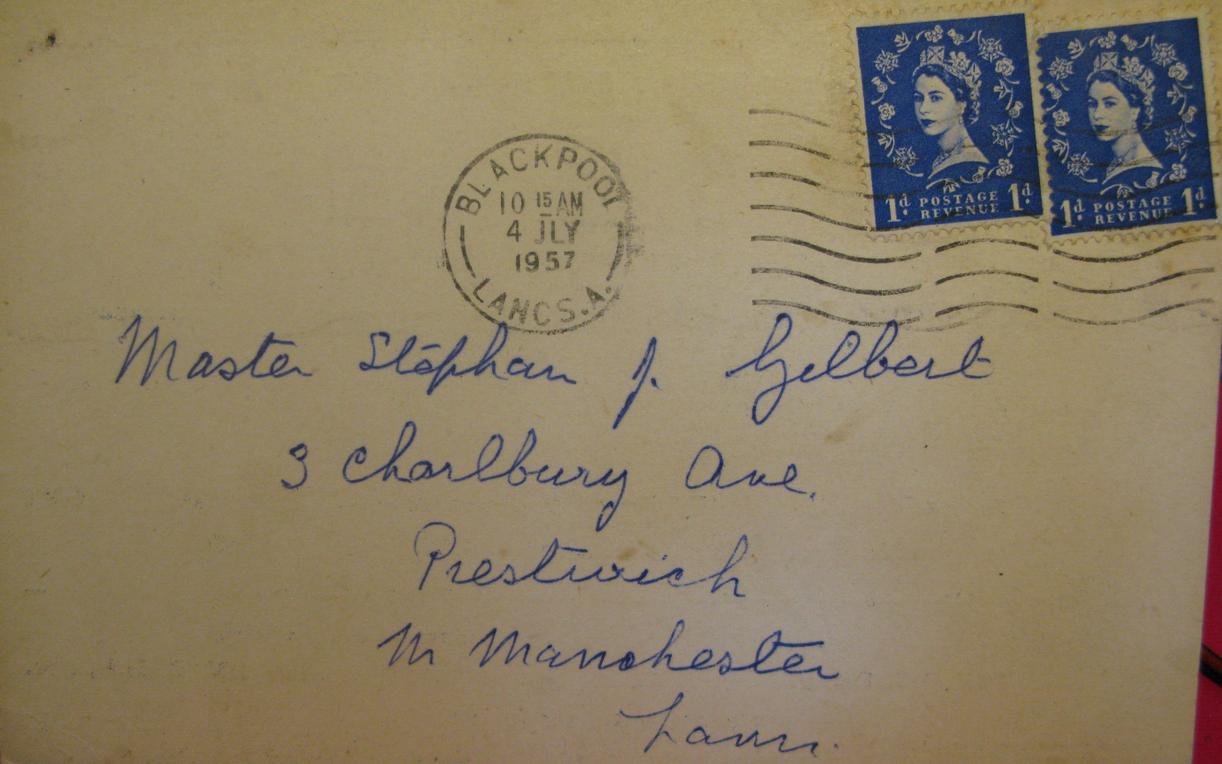 BLACKPOOL
10 15 AM
4 JLY
1957
LANCS.A.
1d. POSTAGE REVENUE 1d.
1d. POSTAGE REVENUE 1d.
Master Stephan J. Gilbert
3 Charlbury Ave.
Prestwich
Nr Manchester
Lancs.